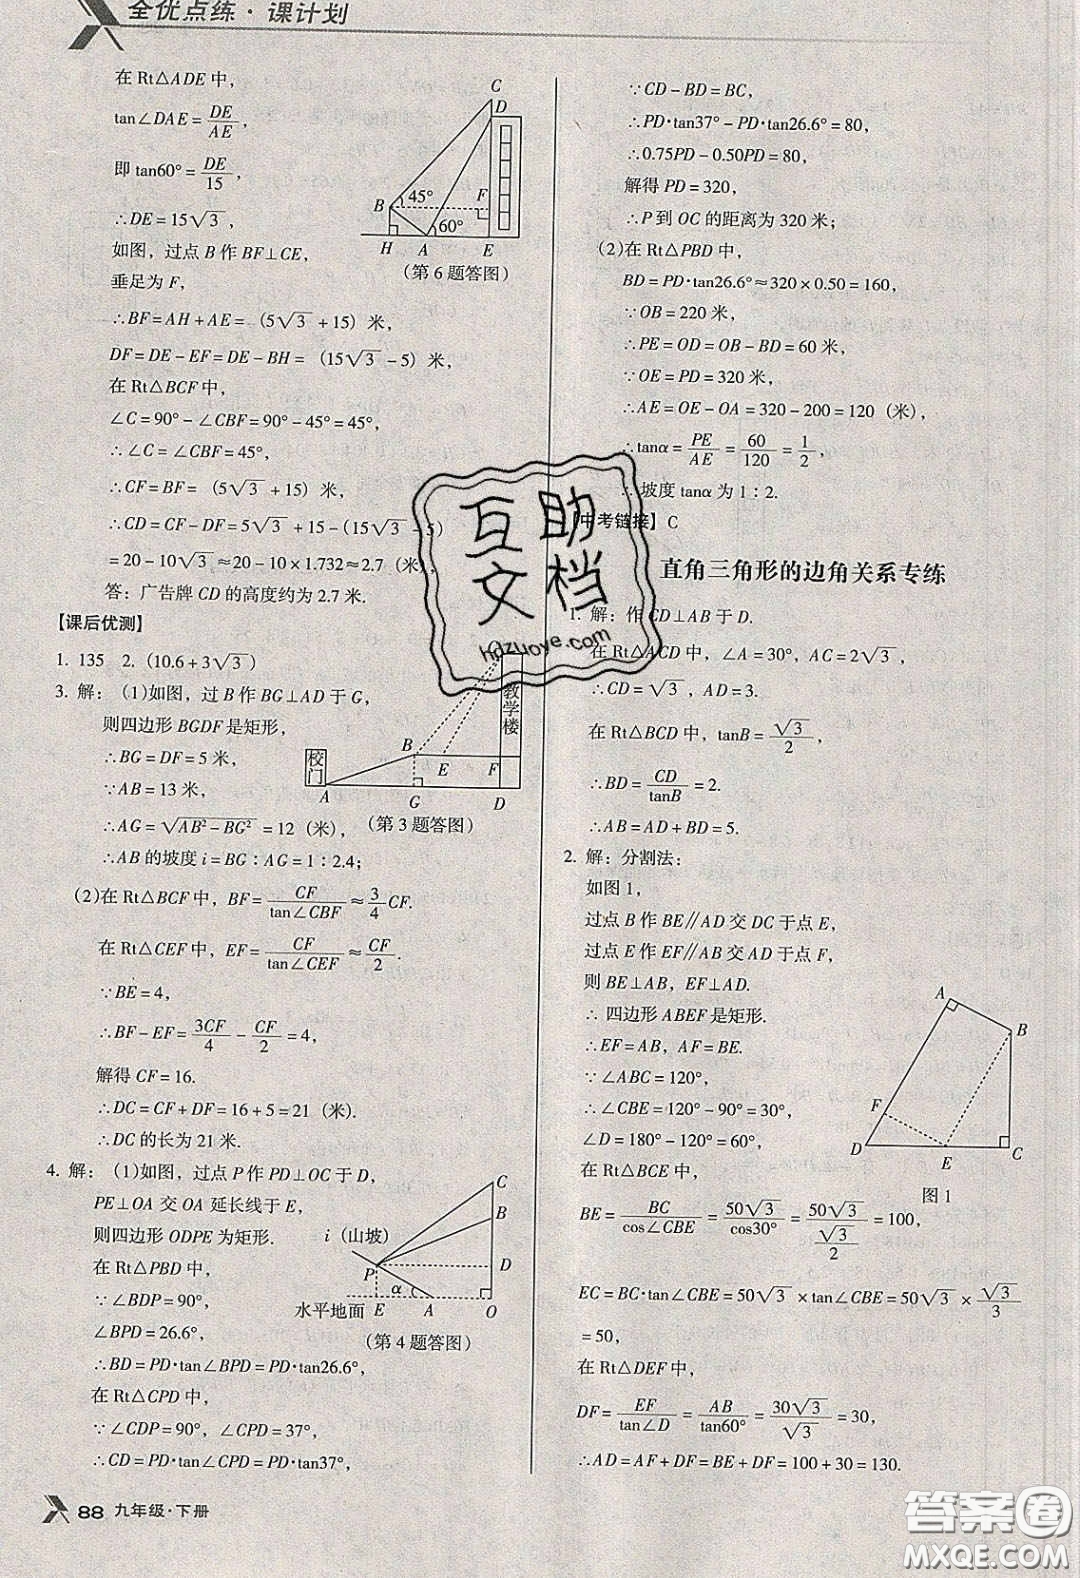 全优点练·课计划
在 Rt△ADE 中,
tan∠DAE=DE/AE,
即 tan60°=DE/15,
∴DE=15√3,
如图，过点 B 作 BF⊥CE,
垂足为 F,
∴BF=AH+AE=(5√3+15) 米,
DF=DE-EF=DE-BH=(15√3-5) 米,
在 Rt△BCF 中,
∠C=90°-∠CBF=90°-45°=45°,
∴∠C=∠CBF=45°,
∴CF=BF=(5√3+15) 米,
∴CD=CF-DF=5√3+15-(15√3-5)
=20-10√3≈2.7(米),
答：广告牌 CD 的高度约为 2.7 米.
C
D
B
45°
F
60°
H
A
E
(第 6 题答图)
【课后优测】
1. 135 2. (10.6+3√3)
3. 解：(1)如图，过 B 作 BG⊥AD 于 G,
则四边形 BGDF 是矩形,
∴BG=DF=5 米,
∵AB=13 米,
∴AG=√(AB²-BG²)=12 (米),
∴AB 的坡度 i=BG∶AG=1∶2.4;
教学楼
校门
B
E
F
A
G
D
(第 3 题答图)
(2)在 Rt△BCF 中，BF=CF/tan∠CBF≈3/4CF.
在 Rt△CEF 中，EF=CF/tan∠CEF≈CF/2.
∵BE=4,
∴BF-EF=3CF/4-CF/2=4,
解得 CF=16.
∴DC=CF+DF=16+5=21 (米).
∴DC 的长为 21 米.
4. 解：(1)如图，过点 P 作 PD⊥OC 于 D,
PE⊥OA 交 OA 延长线于 E,
则四边形 ODPE 为矩形.
在 Rt△PBD 中,
∵∠BDP=90°,
∠BPD=26.6°,
∴BD=PD·tan∠BPD=PD·tan26.6°,
在 Rt△CPD 中,
∵∠CDP=90°，∠CPD=37°,
∴CD=PD·tan∠CPD=PD·tan37°,
C
B
i (山坡)
P
D
α
水平地面
E
A
O
(第 4 题答图)
88 九年级·下册
∵CD-BD=BC,
∴PD·tan37°-PD·tan26.6°=80,
∴0.75PD-0.50PD=80,
解得 PD=320,
∴P 到 OC 的距离为 320 米;
(2)在 Rt△PBD 中,
BD=PD·tan26.6°≈320×0.50=160,
∵OB=220 米,
∴PE=OD=OB-BD=60 米,
∵OE=PD=320 米,
∴AE=OE-OA=320-200=120 (米),
∴tanα=PE/AE=60/120=1/2,
∴坡度 tanα 为 1∶2.
【中考链接】C
直角三角形的边角关系专练
1. 解：作 CD⊥AB 于 D.
在 Rt△ACD 中，∠A=30°，AC=2√3,
∴CD=√3，AD=3.
在 Rt△BCD 中，tanB=√3/2,
∴BD=CD/tanB=2.
∴AB=AD+BD=5.
2. 解：分割法：
如图 1,
过点 B 作 BE∥AD 交 DC 于点 E,
过点 E 作 EF∥AB 交 AD 于点 F,
则 BE⊥AB，EF⊥AD.
∴ 四边形 ABEF 是矩形.
∴EF=AB，AF=BE.
∵∠ABC=120°,
∴∠CBE=120°-90°=30°,
∠D=180°-120°=60°,
在 Rt△BCE 中,
BE=BC/cos∠CBE=50√3/cos30°=50√3/(√3/2)=100,
EC=BC·tan∠CBE=50√3×tan∠CBE=50√3×√3/3
=50,
在 Rt△DEF 中,
DF=EF/tan∠D=AB/tan60°=30√3/√3=30,
∴AD=AF+DF=BE+DF=100+30=130.
A
B
F
D
E
C
图 1
互助
文档
hdzuoye.com
答案圈
MXQE.COM